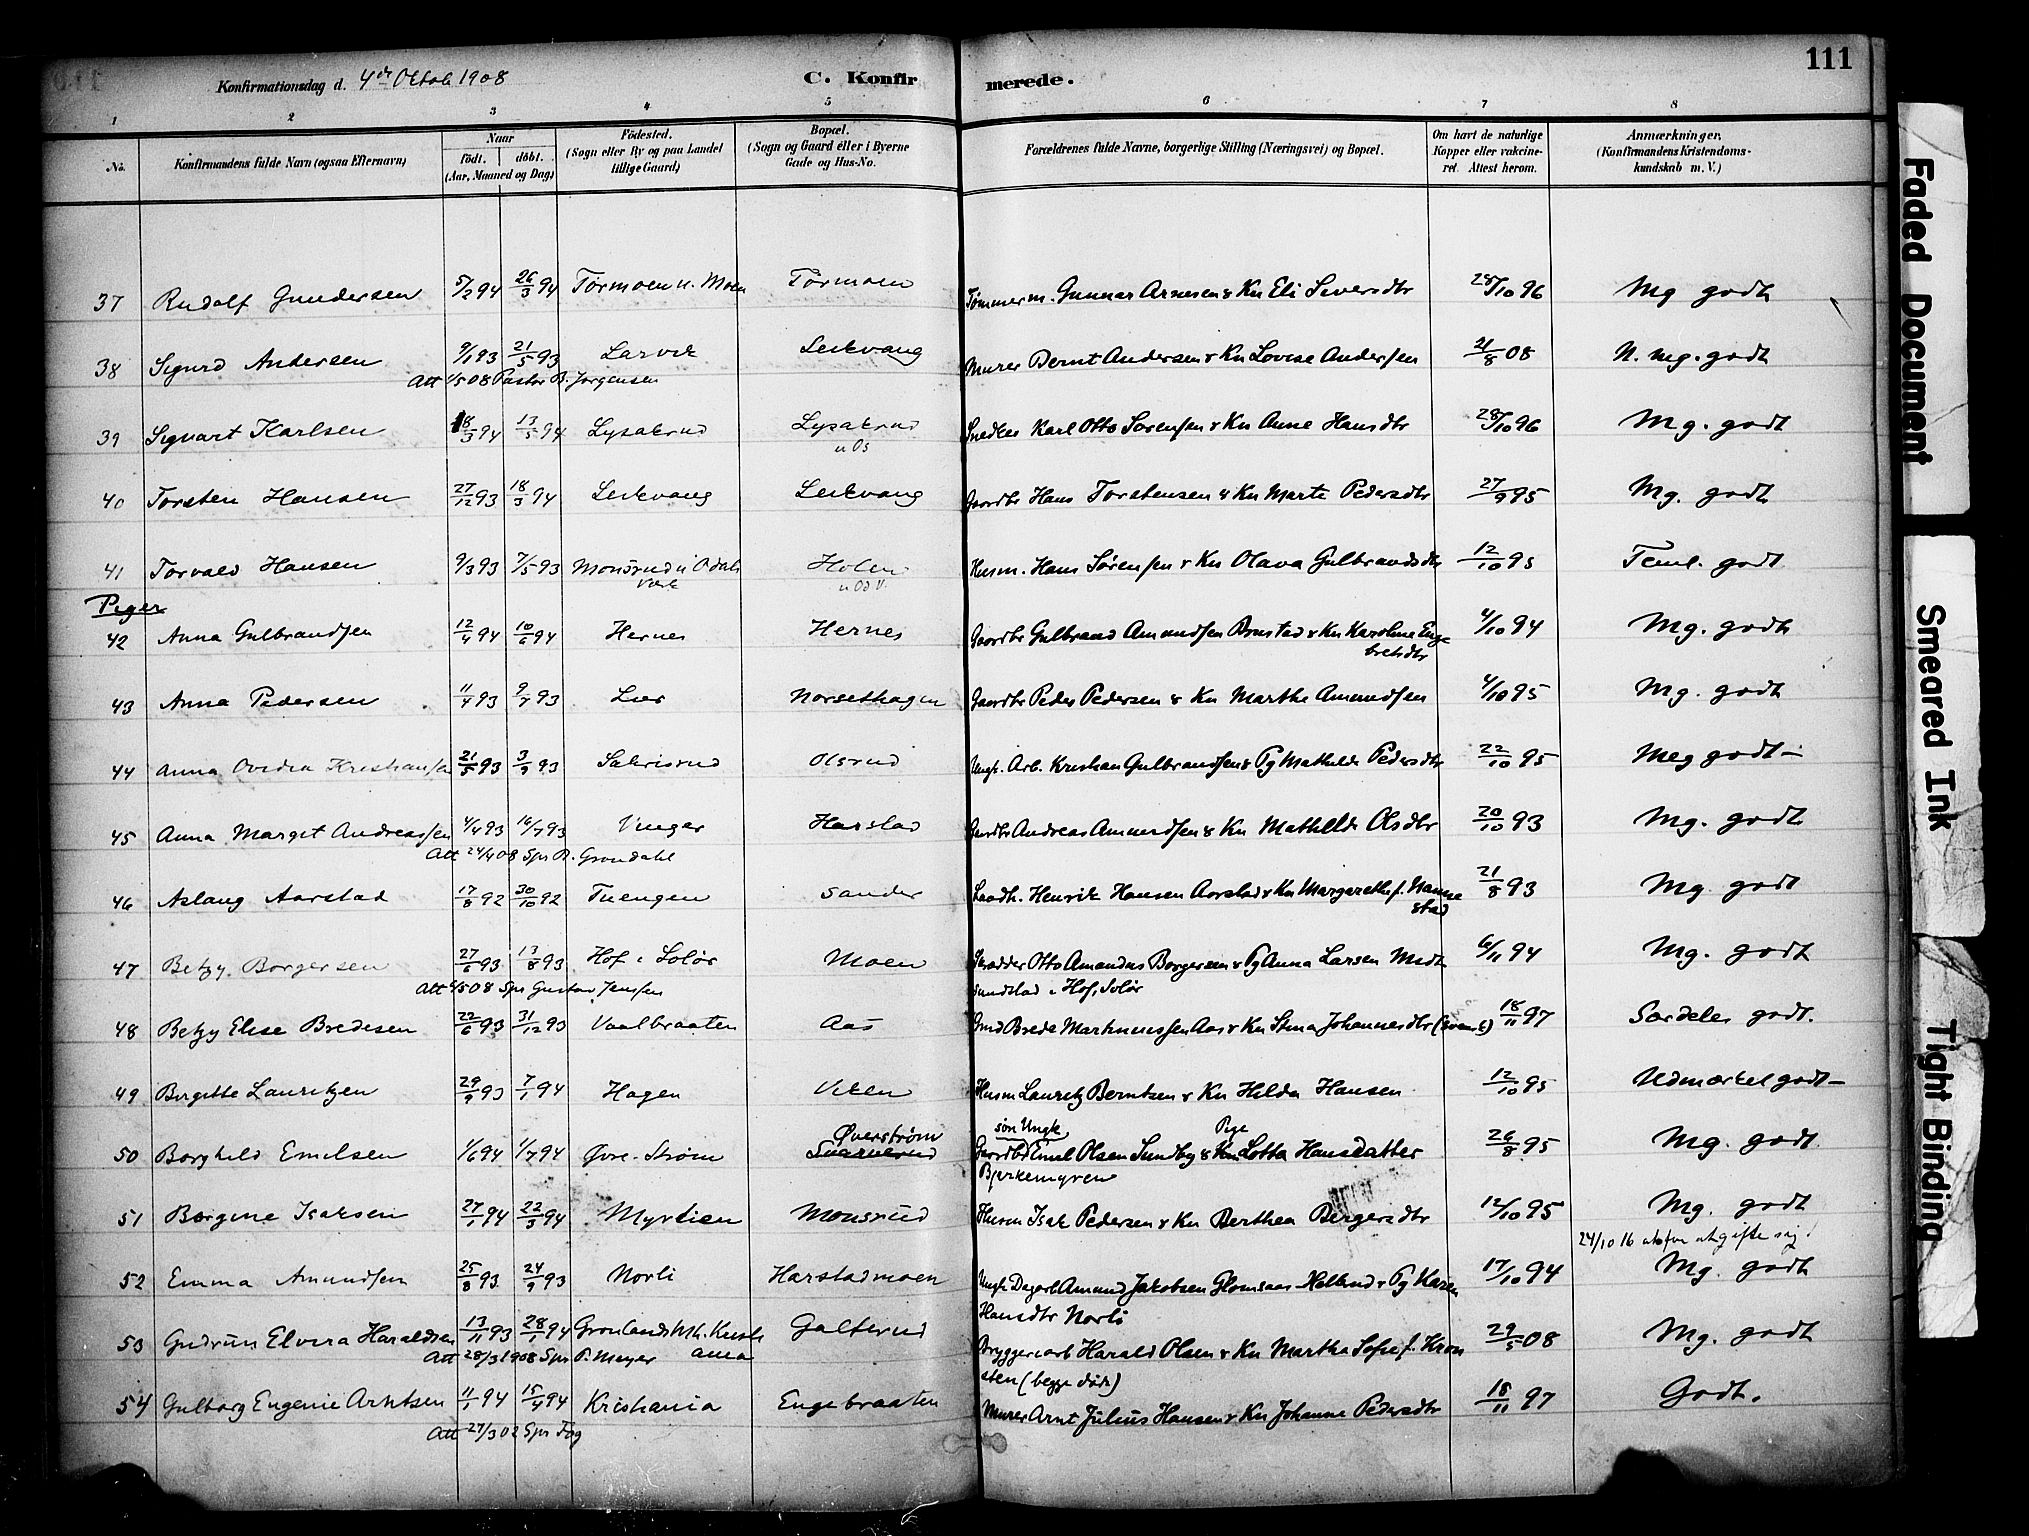 111
Konfirmationsdag d. 4de Oktob 1908 C. Konfirmerede.
1 2 3 4 5 6 7 8
No. Konfirmandens fulde Navn (ogsaa Efternavn) Naar födt. döbt. (Aar, Maaned og Dag) Födested. (Sogn eller By og paa Landet tillige Gaard) Bopæl. (Sogn og Gaard eller i Byerne Gade og Hus-No. Forældrenes fulde Navne, borgerlige Stilling (Næringsvei) og Bopæl. Om havt de naturlige Kopper eller vaccineret. Attest herom. Anmærkninger. (Konfirmandens Kristendomskundskab m. V.)
37 Rudolf Gundersen 5/2 94 26/3 94 Tørmoen u. Moen Tørmoen Tømmerm. Gunnar Arnesen & Kn Eli Siversdtr 28/10 96 Mg godt
38 Sigurd Andersen 9/1 93 21/5 93 Larvik Leikvang Murer Bernt Andersen & Kn Lovise Andersen 21/8 08 N. mg. godt
Att 4/5 08 Pastor B. Jørgensen
39 Sigvart Karlsen 18/3 94 13/5 94 Lysakrud Lysakrud u Os Snedker Karl Otto Sørensen & Kn Anne Hansdtr 28/10 96 Mg. godt
40 Torsten Hansen 27/12 93 18/3 94 Leikvang Leikvang Gaardbr Hans Torstensen & Kn Marte Pedersdtr 27/9 95 Mg. godt
41 Torvald Hansen 9/3 93 7/5 93 Monsrud u Odals Verk Holen u Od V. Husm. Hans Sørensen & Kn Olava Gulbrandsdtr 12/10 95 Teml. godt
Piger
42 Anna Gulbrandsen 12/4 94 10/6 94 Hernes Hernes Gaardbr Gulbrand Amundsen Brustad & Kn Karoline Engebretsdtr 4/10 94 Mg. godt
43 Anna Pedersen 11/4 93 9/7 93 Lier Norsethagen Gaardbr Peder Pedersen & Kn Marthe Amundsen 4/10 95 Mg. godt
44 Anna Ovidia Kristiansen 21/5 93 3/9 93 Sakrisrud Olsrud Ungk. Arb. Kristian Gulbrandsen & Pg Mathilde Pedersdtr 22/10 95 Meg godt –
45 Anna Margit Andreassen 4/4 93 16/7 93 Vinger Harstad Gardbr Andreas Amundsen & Kn Mathilde Olsdtr 20/10 93 Mg. godt
Att 24/4 08 Spr B. Grøndahl
46 Aslaug Aarstad 17/8 92 30/10 92 Tuengen Sander Landh. Henrik Hansen Aarstad & Kn Margarethe f. Nannestad 21/8 93 Mg. godt
47 Betzy Borgersen 27/6 93 13/8 93 Hof i Solør Moen Skrædder Otto Amandus Borgersen & Pg Anna Larsen Midtsundstad i Hof, Solør 6/11 94 Mg. godt
Att 4/5 08 Spr Gustav Jensen
48 Betzy Elise Bredesen 22/6 93 31/12 93 Vaalbraaten Aas Gmd Brede Martinussen Aas & Kn Stina Johannesdtr (svensk) 18/11 97 Særdeles godt.
49 Birgitte Lauritzen 29/9 93 7/1 94 Hagen Viken Husm Lauritz Berntsen & Kn Hilda Hansen 12/10 95 Udmærket godt –
50 Borghild Emilsen 1/6 94 1/7 94 Øvre-Strøm Øverstrøm Svarverud Gaardbr søn Ungk Emil Olsen Sundby & Kn Pige Lotta Hansdatter Bjerkemyren 26/8 95 Mg. godt
51 Borgine Isaksen 27/1 94 22/3 94 Myrstien Monsrud Husm Isak Pedersen & Kn Berthea Bergersdtr 12/10 95 Mg. godt
24/10 16 utsfor utgifte sig.
52 Emma Amundsen 25/8 93 24/9 93 Norli Harstadmoen Ungk Dagarb Amund Jakobsen Glomsaas & Pg Karen Hansdtr Norli 17/10 94 Mg. godt
53 Gudrun Elvira Haraldsen 13/11 93 28/1 94 Grønlands Mh. Kristiania Galterud Bryggeriarb Harald Olsen & Kn Martha Sofie f. Kronsten (begge døde) 29/5 08 Mg. godt
Att 28/3 1908 Spr P. Meyer
54 Gulborg Eugenie Arntsen 11/1 94 15/4 94 Kristiania Engebraaten Murer Arnt Julius Hansen & Kn Johanne Pedersdtr 18/11 97 Godt.
Att 27/3 02 Spr Fog
Faded Document
Smeared Ink
Tight Binding